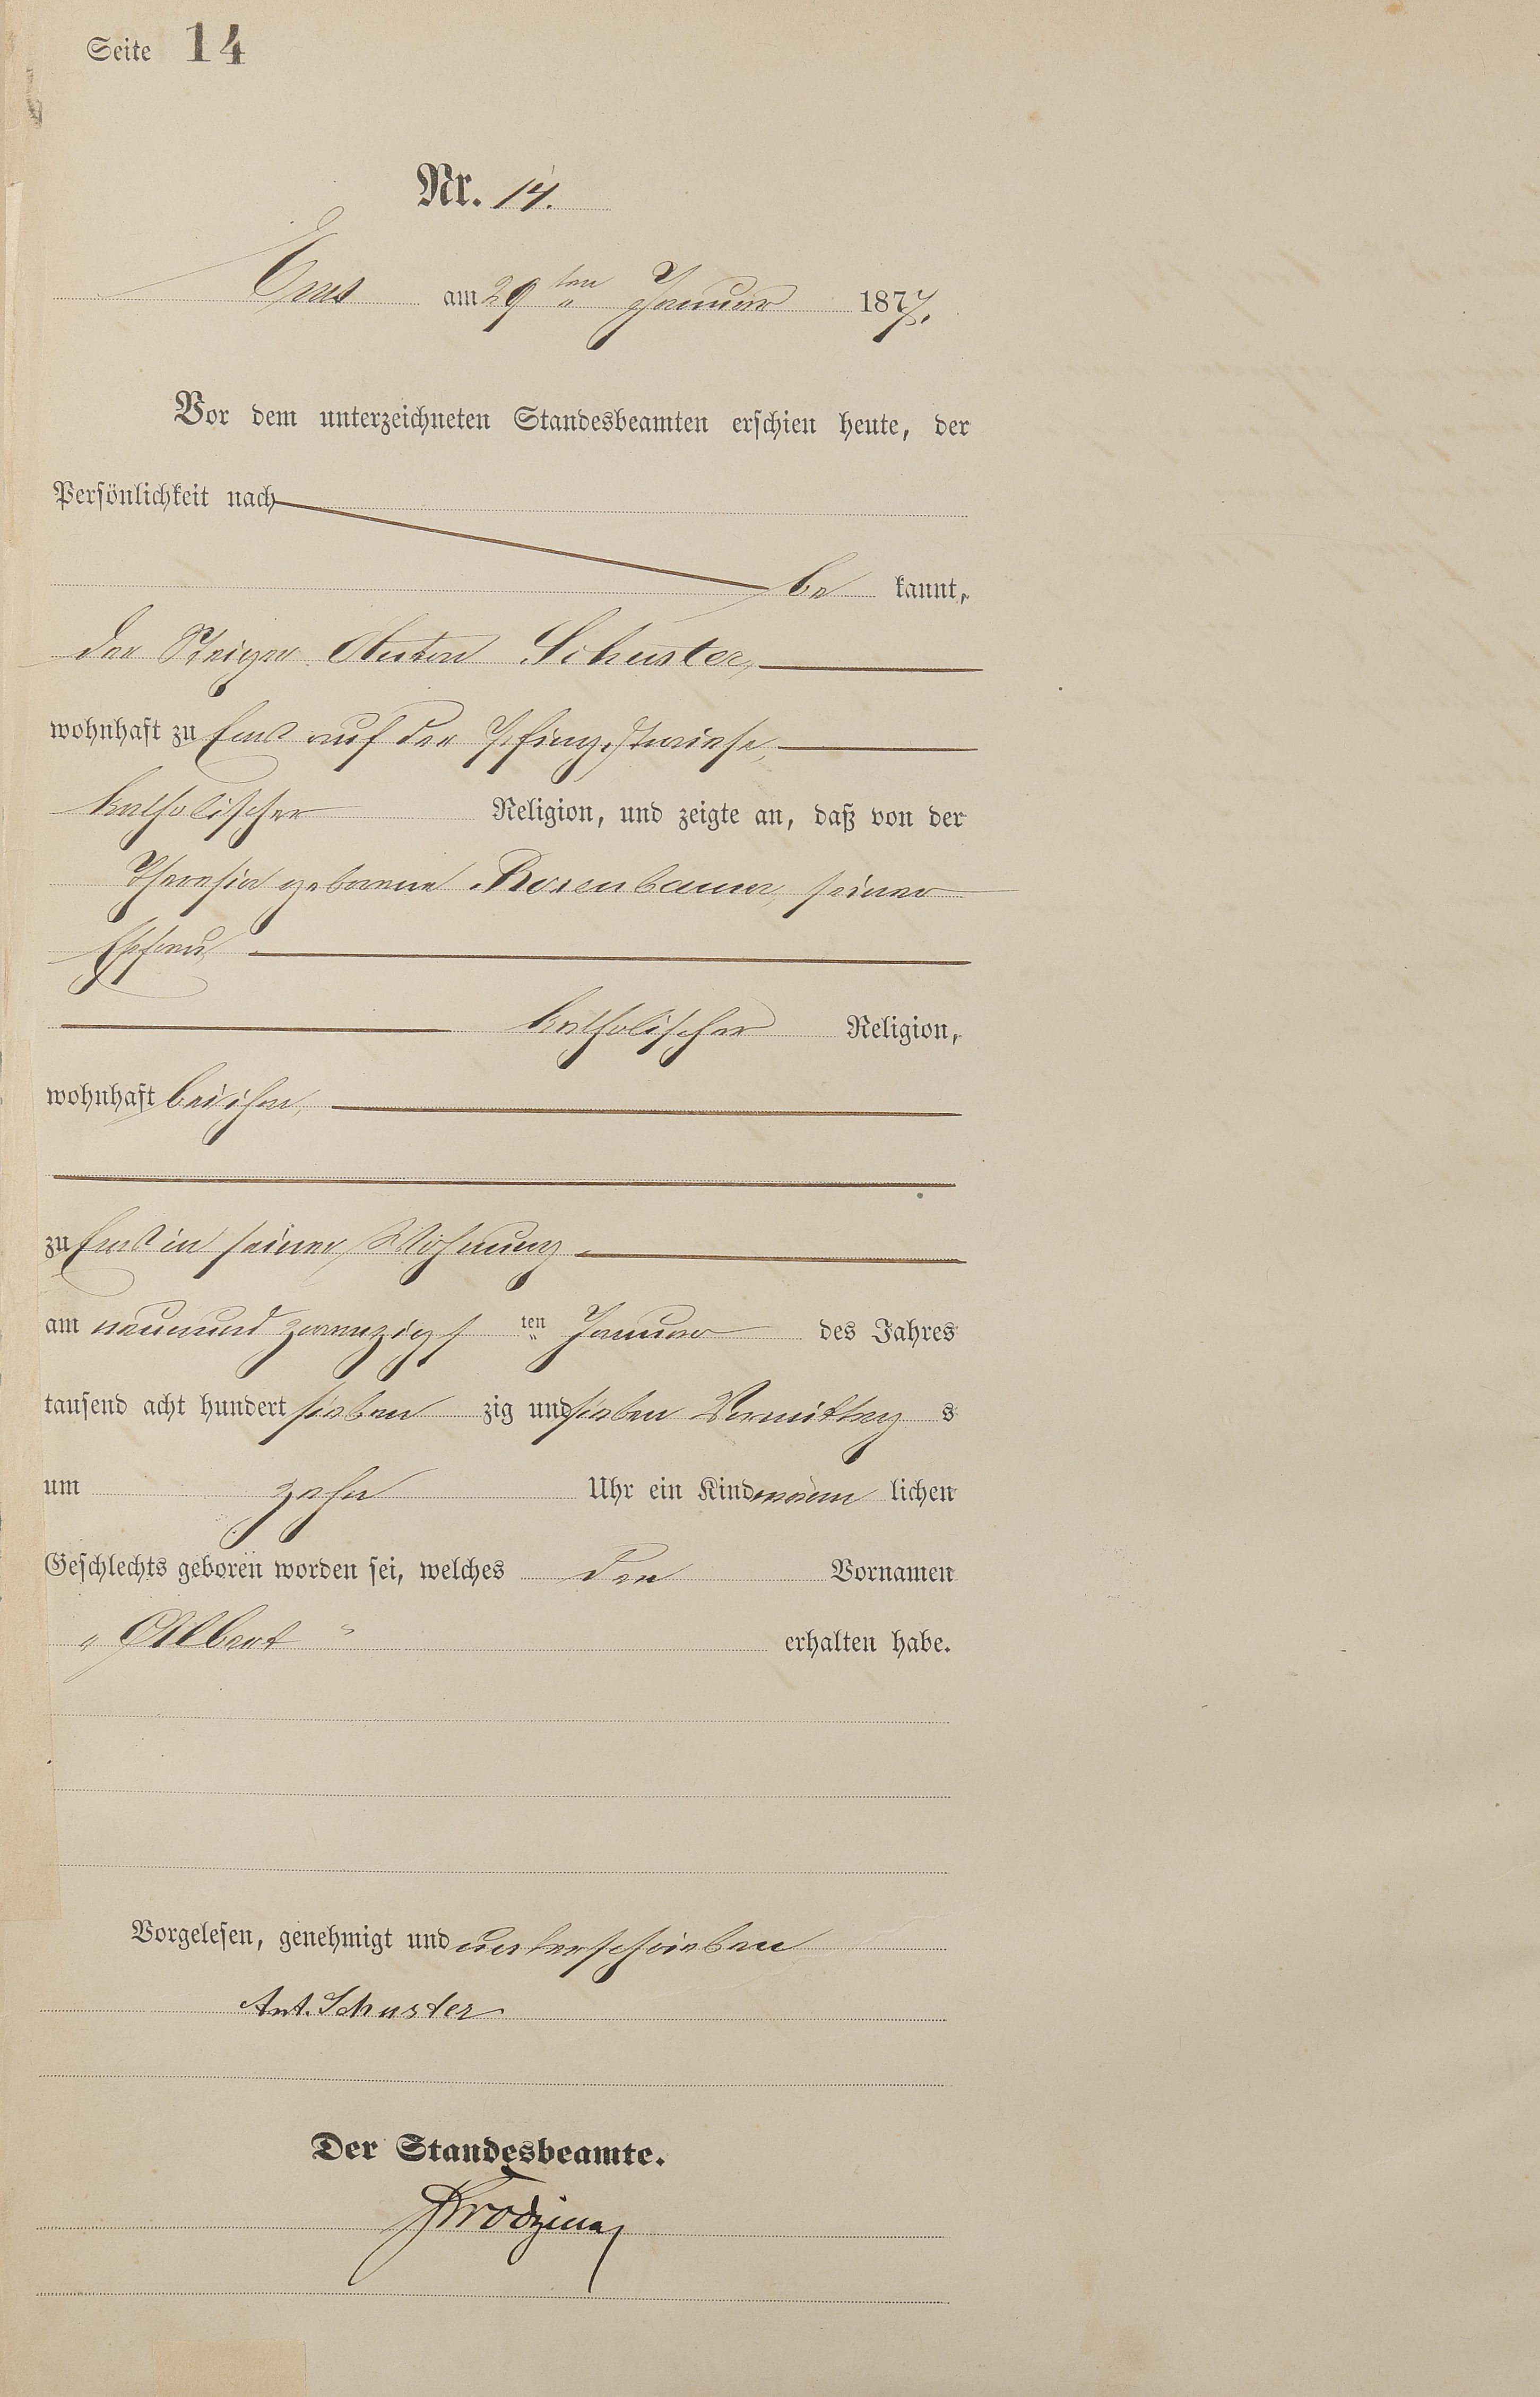 Seite 14
Nr. 14.
Ems am 29ten Januar 1877.
Vor dem unterzeichneten Standesbeamten erschien heute, der
Persönlichkeit nach
be kannt,
der Steiger Anton Schuster,
wohnhaft zu Ems auf der Pfingstwiese,
katholischer Religion, und zeigte an, daß von der
Theresia geborene Rosenbaum, seiner
Ehefrau,
katholischer Religion,
wohnhaft bei ihm,
zu Ems in seiner Wohnung
am neunund zwanzigs ten Januar des Jahres
tausend acht hundert sieben zig und sieben Vormittag s
um zehn Uhr ein Kind männ lichen
Geschlechts geboren worden sei, welches den Vornamen
„Albert“ erhalten habe.
Vorgelesen, genehmigt und unterschrieben
Ant. Schuster
Der Standesbeamte.